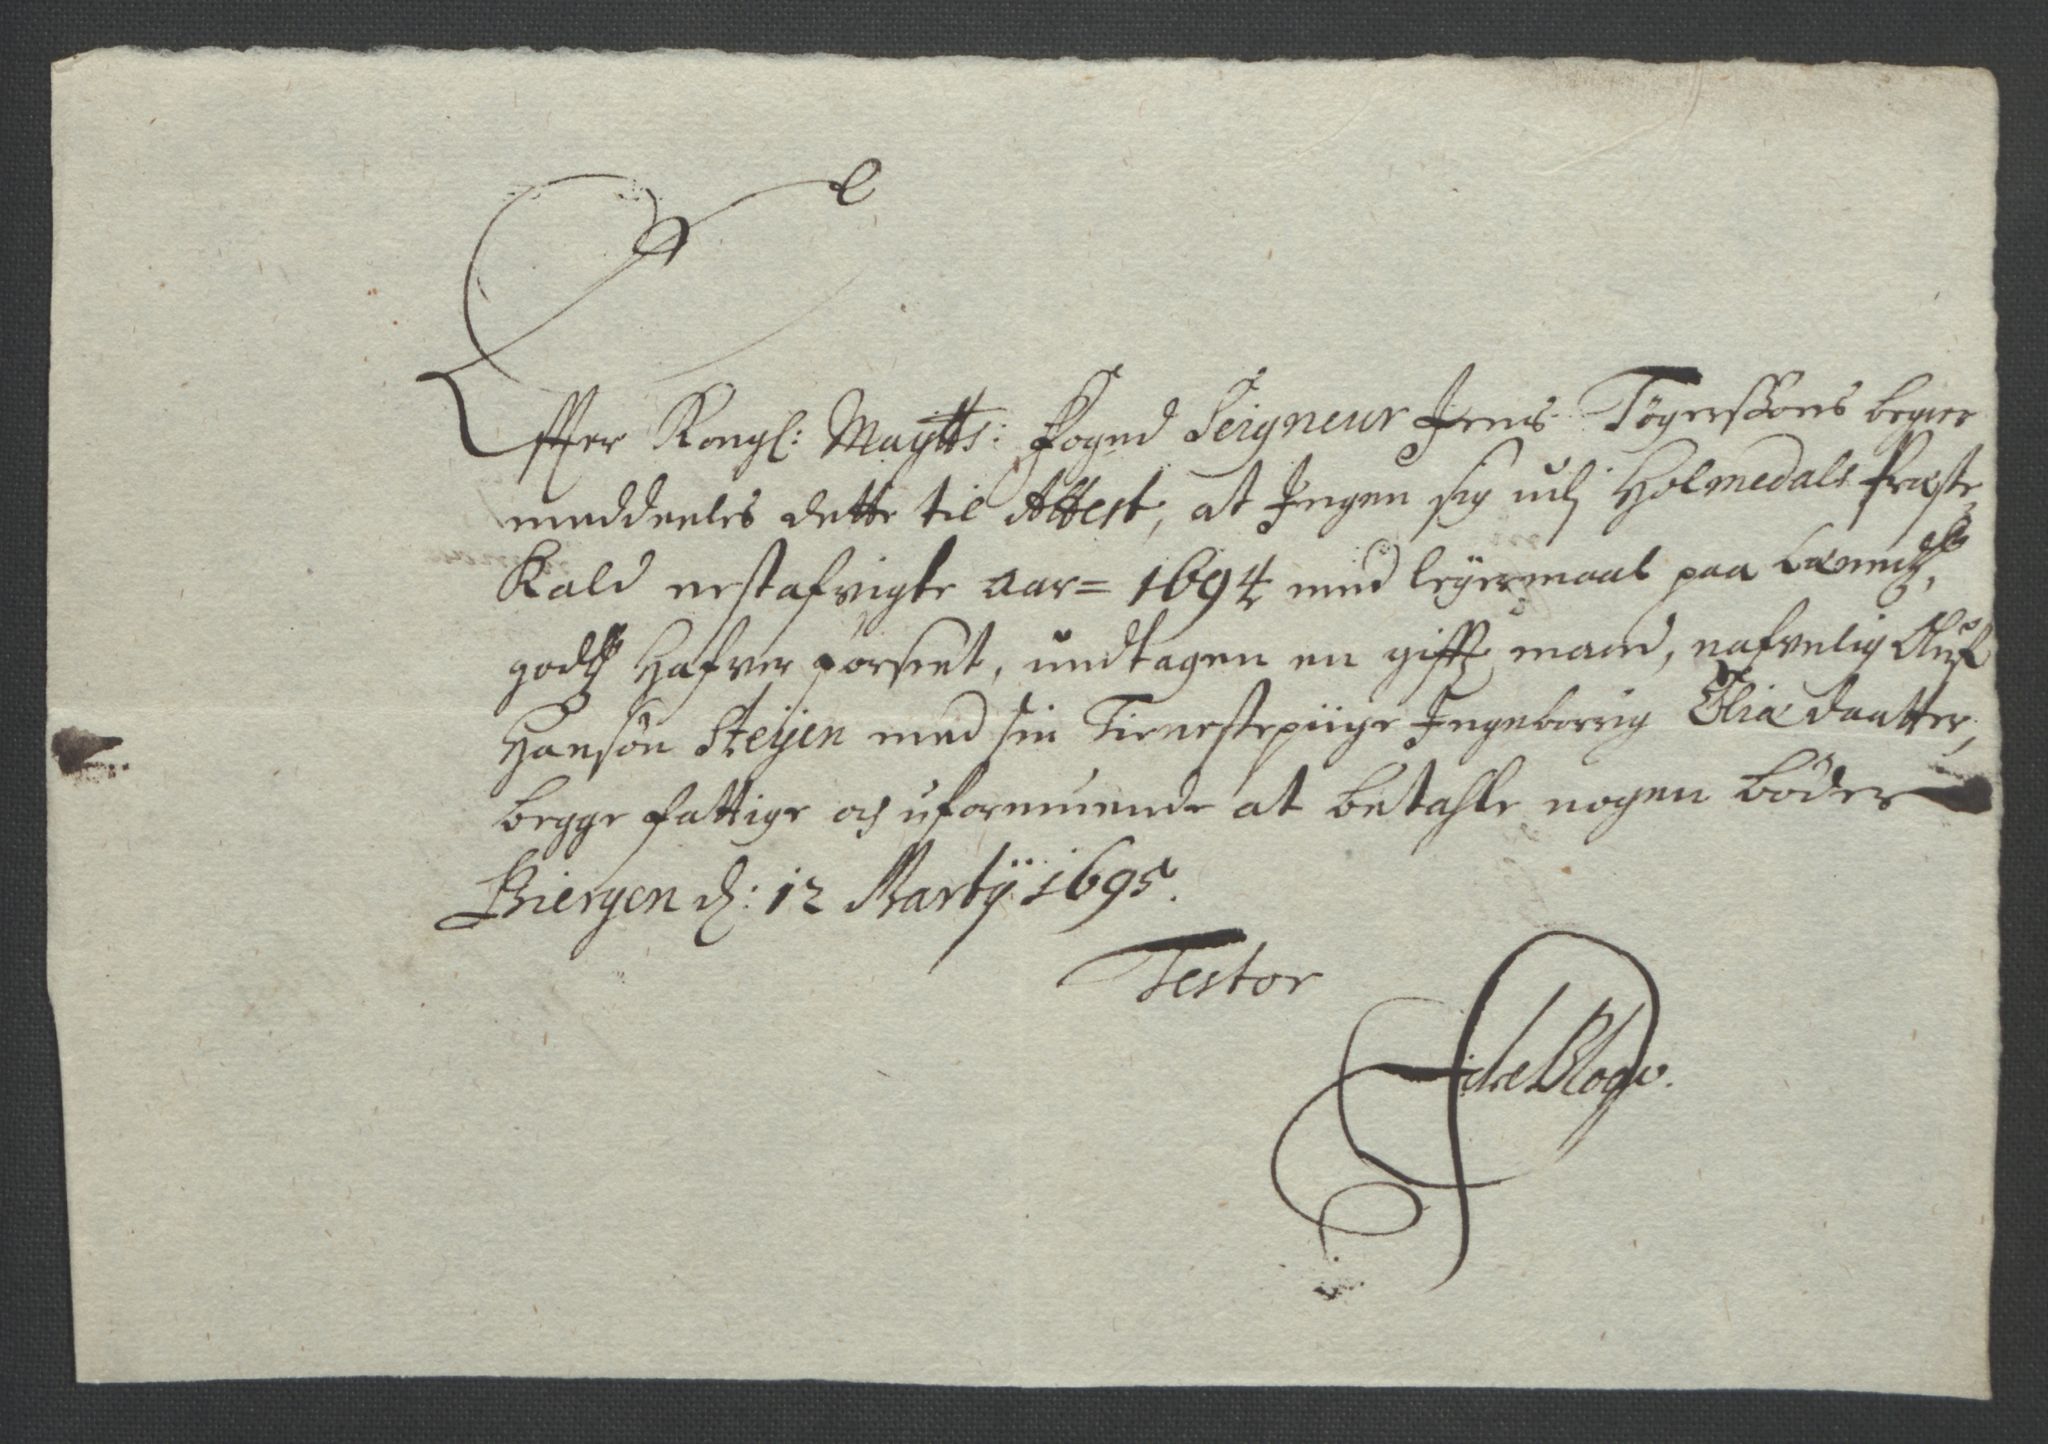 Effter Kongl: Maytts: Foged Seigneur Jens Tøgerssøns begier
meddeeles dette til Attest, at Ingen sig udj Holmedals Præste
Kald nestafvigte aar = 1694 med leyermaal paa Lænids,
gods hafver forseet, undtagen en gifft mand, nafnlig Oluf
Hansøn Steyen med sin Tienestepiige Ingeborrig Elia daatter,
begge fattige och uformuende at betahle nogen bøder
Biergen d: 12 Martij 1695.
Testor